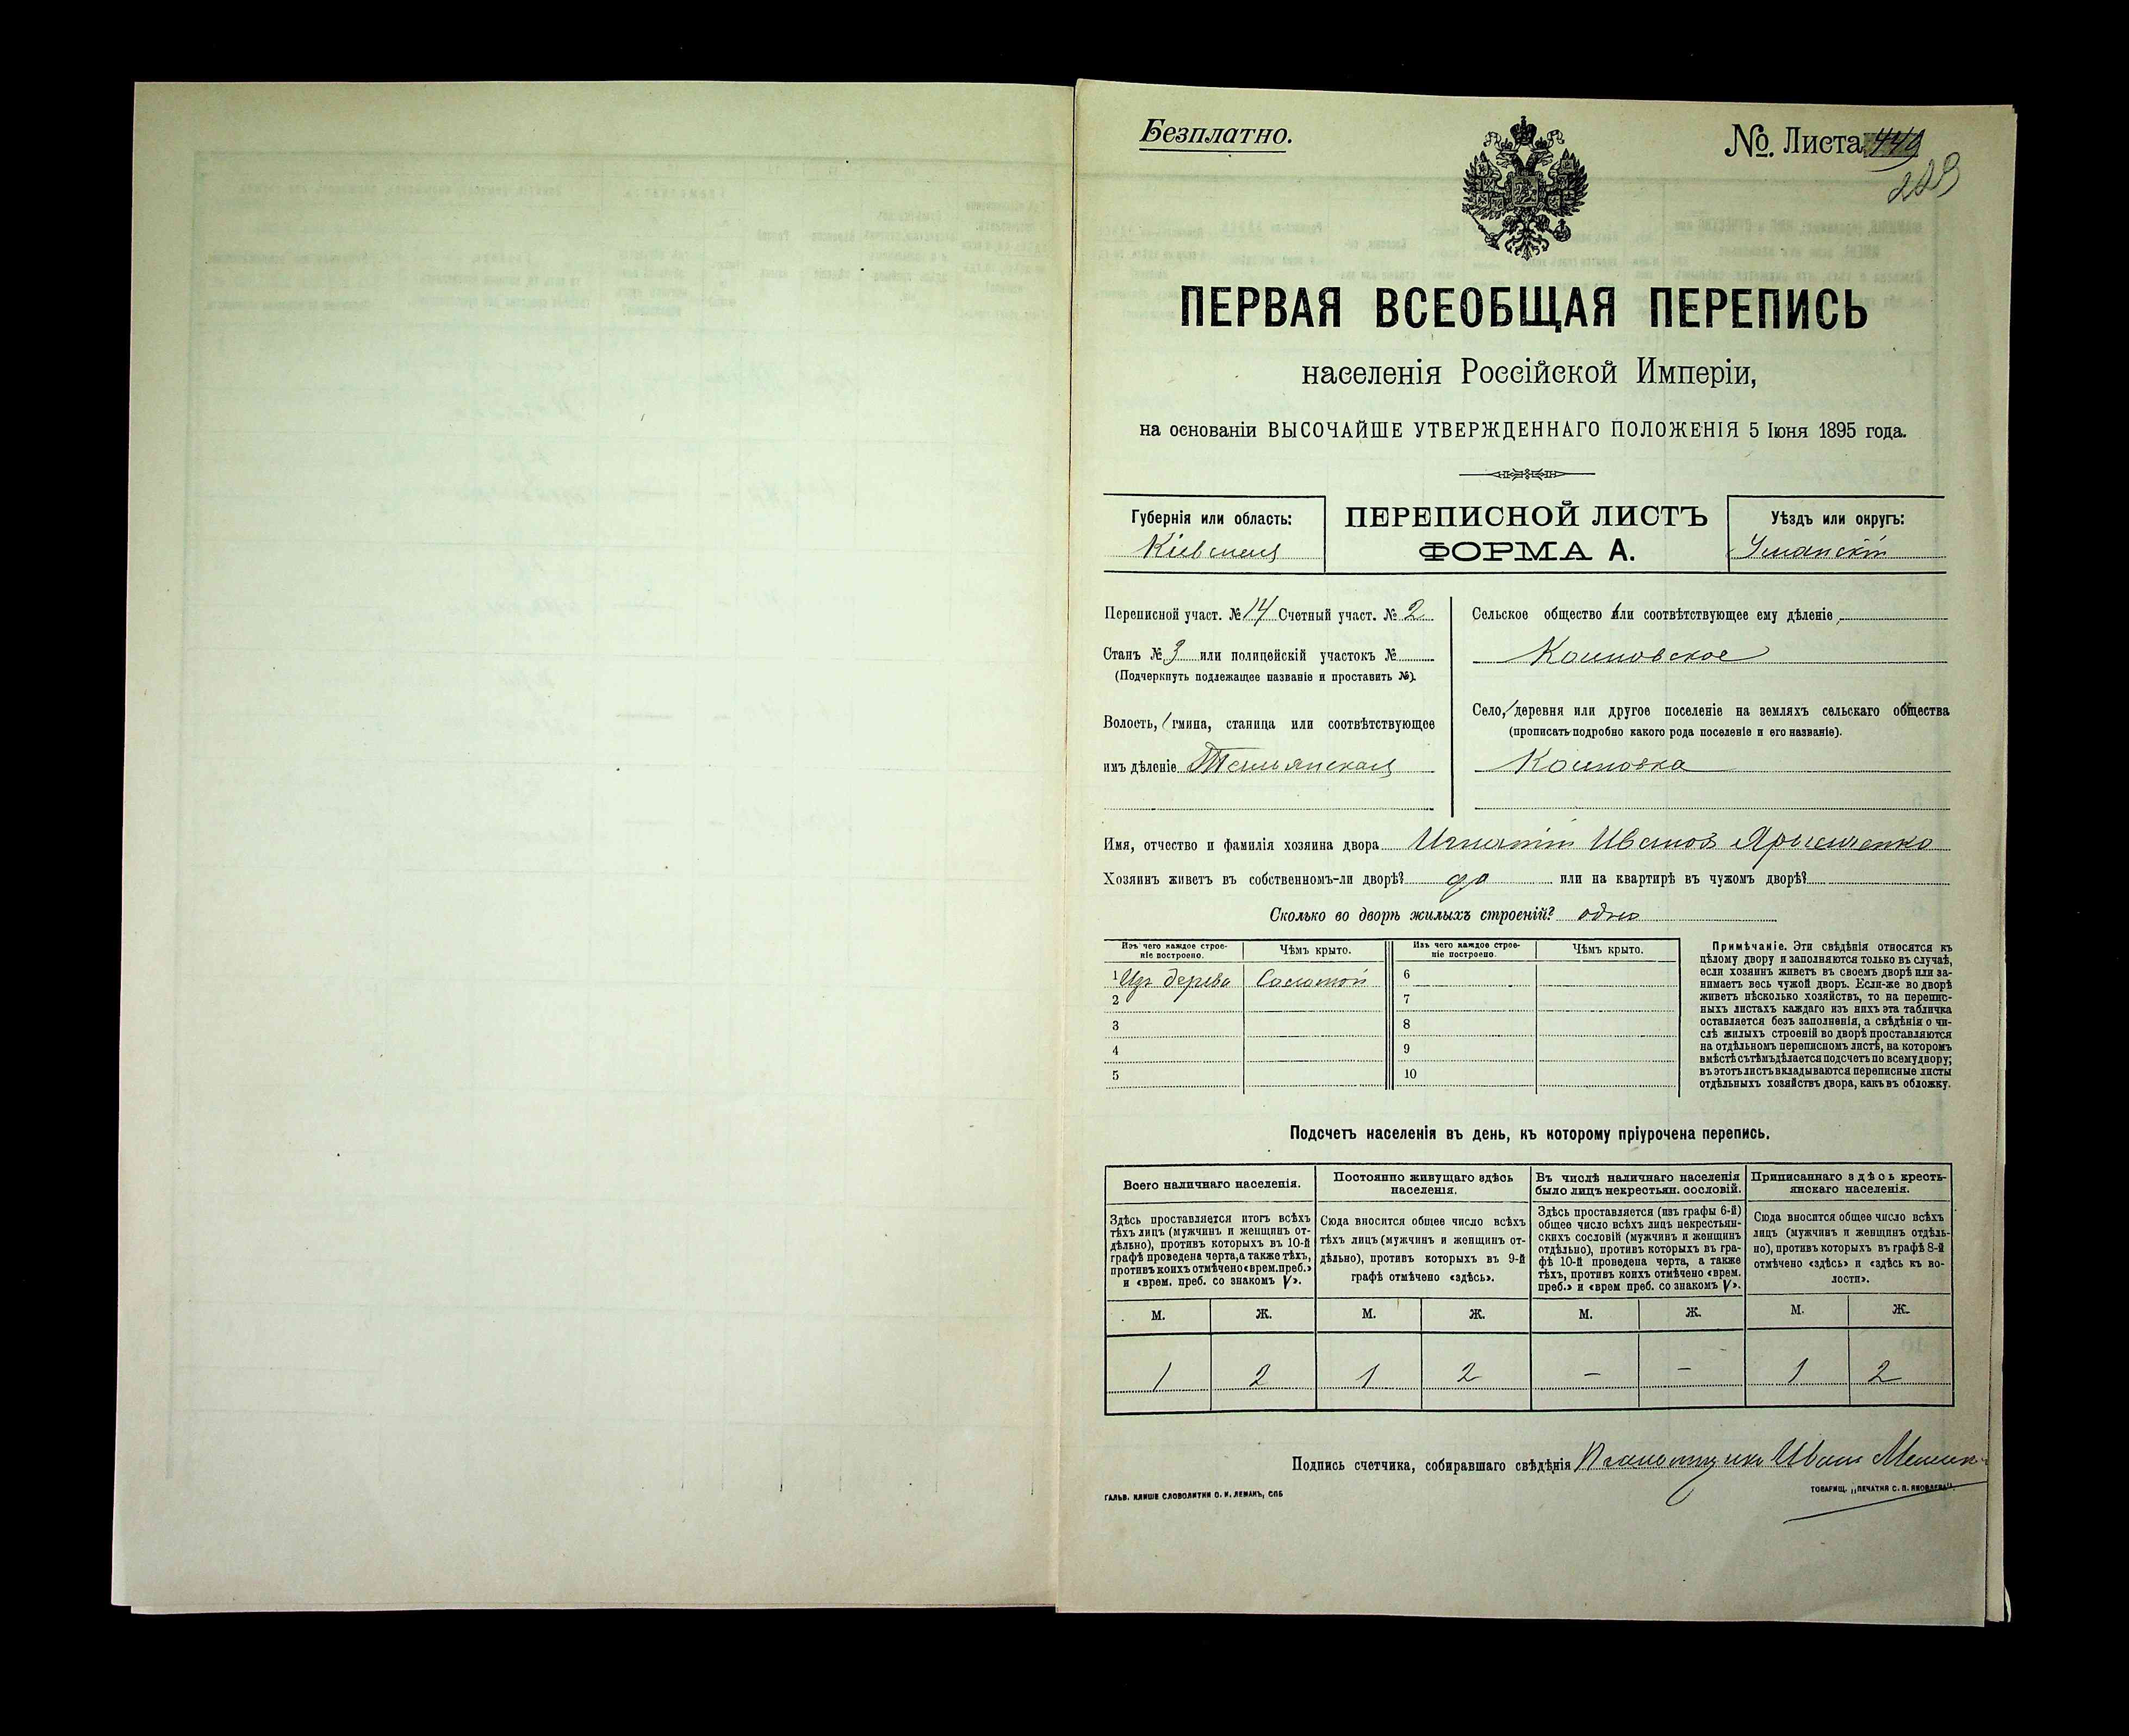 Безплатно.
№ Листа 449
223
ПЕРВАЯ ВСЕОБЩАЯ ПЕРЕПИСЬ
населенія Россійской Имперіи,
на основаніи ВЫСОЧАЙШЕ УТВЕРЖДЕННАГО ПОЛОЖЕНІЯ 5 Іюня 1895 года.
Губернія или область:
Кіевская
ПЕРЕПИСНОЙ ЛИСТЪ
ФОРМА А.
Уѣздъ или округъ:
Уманскій
Переписной участ. № 14 Счетный участ. № 2
Станъ № 3 или полицейскій участокъ №
(Подчеркнуть подлежащее названіе и проставить №).
Волость, гмина, станица или соотвѣтствующее
имъ дѣленіе
Сельское общество или соотвѣтствующее ему дѣленіе
Село, деревня или другое поселеніе на земляхъ сельскаго общества
(прописать подробно какого рода поселеніе и его названіе).
Имя, отчество и фамилія хозяина двора Игнатій Иванов
Хозяинъ живетъ въ собственномъ-ли дворѣ? да или на квартирѣ въ чужомъ дворѣ?
Сколько во дворѣ жилыхъ строеній? одно
Изъ чего каждое строе-
ніе построено.
Чѣмъ крыто.
Изъ чего каждое строе-
ніе построено.
Чѣмъ крыто.
1 Изъ дерева Соломой
2
3
4
5
6
7
8
9
10
Примѣчаніе. Эти свѣдѣнія относятся къ
цѣлому двору и заполняются только въ случаѣ,
если хозяинъ живетъ въ своемъ дворѣ или за-
нимаетъ весь чужой дворъ. Если-же во дворѣ
живетъ нѣсколько хозяйствъ, то на перепис-
ныхъ листахъ каждаго изъ нихъ эта табличка
оставляется безъ заполненія, а свѣдѣнія о чи-
слѣ жилыхъ строеній во дворѣ проставляются
на отдѣльномъ переписномъ листѣ, на которомъ
вмѣстѣ съ тѣмъ дѣлается подсчетъ по всему двору;
въ этотъ листъ вкладываются переписные листы
отдѣльныхъ хозяйствъ двора, какъ въ обложку.
Подсчетъ населенія въ день, къ которому пріурочена перепись.
Всего наличнаго населенія.
Здѣсь проставляется итогъ всѣхъ
тѣхъ лицъ (мужчинъ и женщинъ от-
дѣльно), противъ которыхъ въ 10-й
графѣ проведена черта, а также тѣхъ,
противъ коихъ отмѣчено «врем. преб.»
и «врем. преб. со знакомъ V».
Постоянно живущаго здѣсь
населенія.
Сюда вносится общее число всѣхъ
тѣхъ лицъ (мужчинъ и женщинъ от-
дѣльно), противъ которыхъ въ 9-й
графѣ отмѣчено «здѣсь».
Въ числѣ наличнаго населенія
было лицъ некрестьян. сословій.
Здѣсь проставляется (изъ графы 6-й)
общее число всѣхъ лицъ некрестьян-
скихъ сословій (мужчинъ и женщинъ
отдѣльно), противъ которыхъ въ гра-
фѣ 10-й проведена черта, а также
тѣхъ, противъ коихъ отмѣчено «врем.
преб.» и «врем преб. со знакомъ V».
Приписаннаго здѣсь кресть-
янскаго населенія.
Сюда вносится общее число всѣхъ
лицъ (мужчинъ и женщинъ отдѣль-
но), противъ которыхъ въ графѣ 8-й
отмѣчено «здѣсь» и «здѣсь къ во-
лости».
М. Ж. М. Ж. М. Ж. М. Ж.
1 2 1 2 – – 1 2
Подпись счетчика, собиравшаго свѣдѣнія Иванъ
ГАЛЬВ. КЛИШЕ СЛОВОЛИТНИ О. И. ЛЕМАНЪ, СПБ
ТОВАРИЩ. „ПЕЧАТНЯ С. П. ЯКОВЛЕВА".